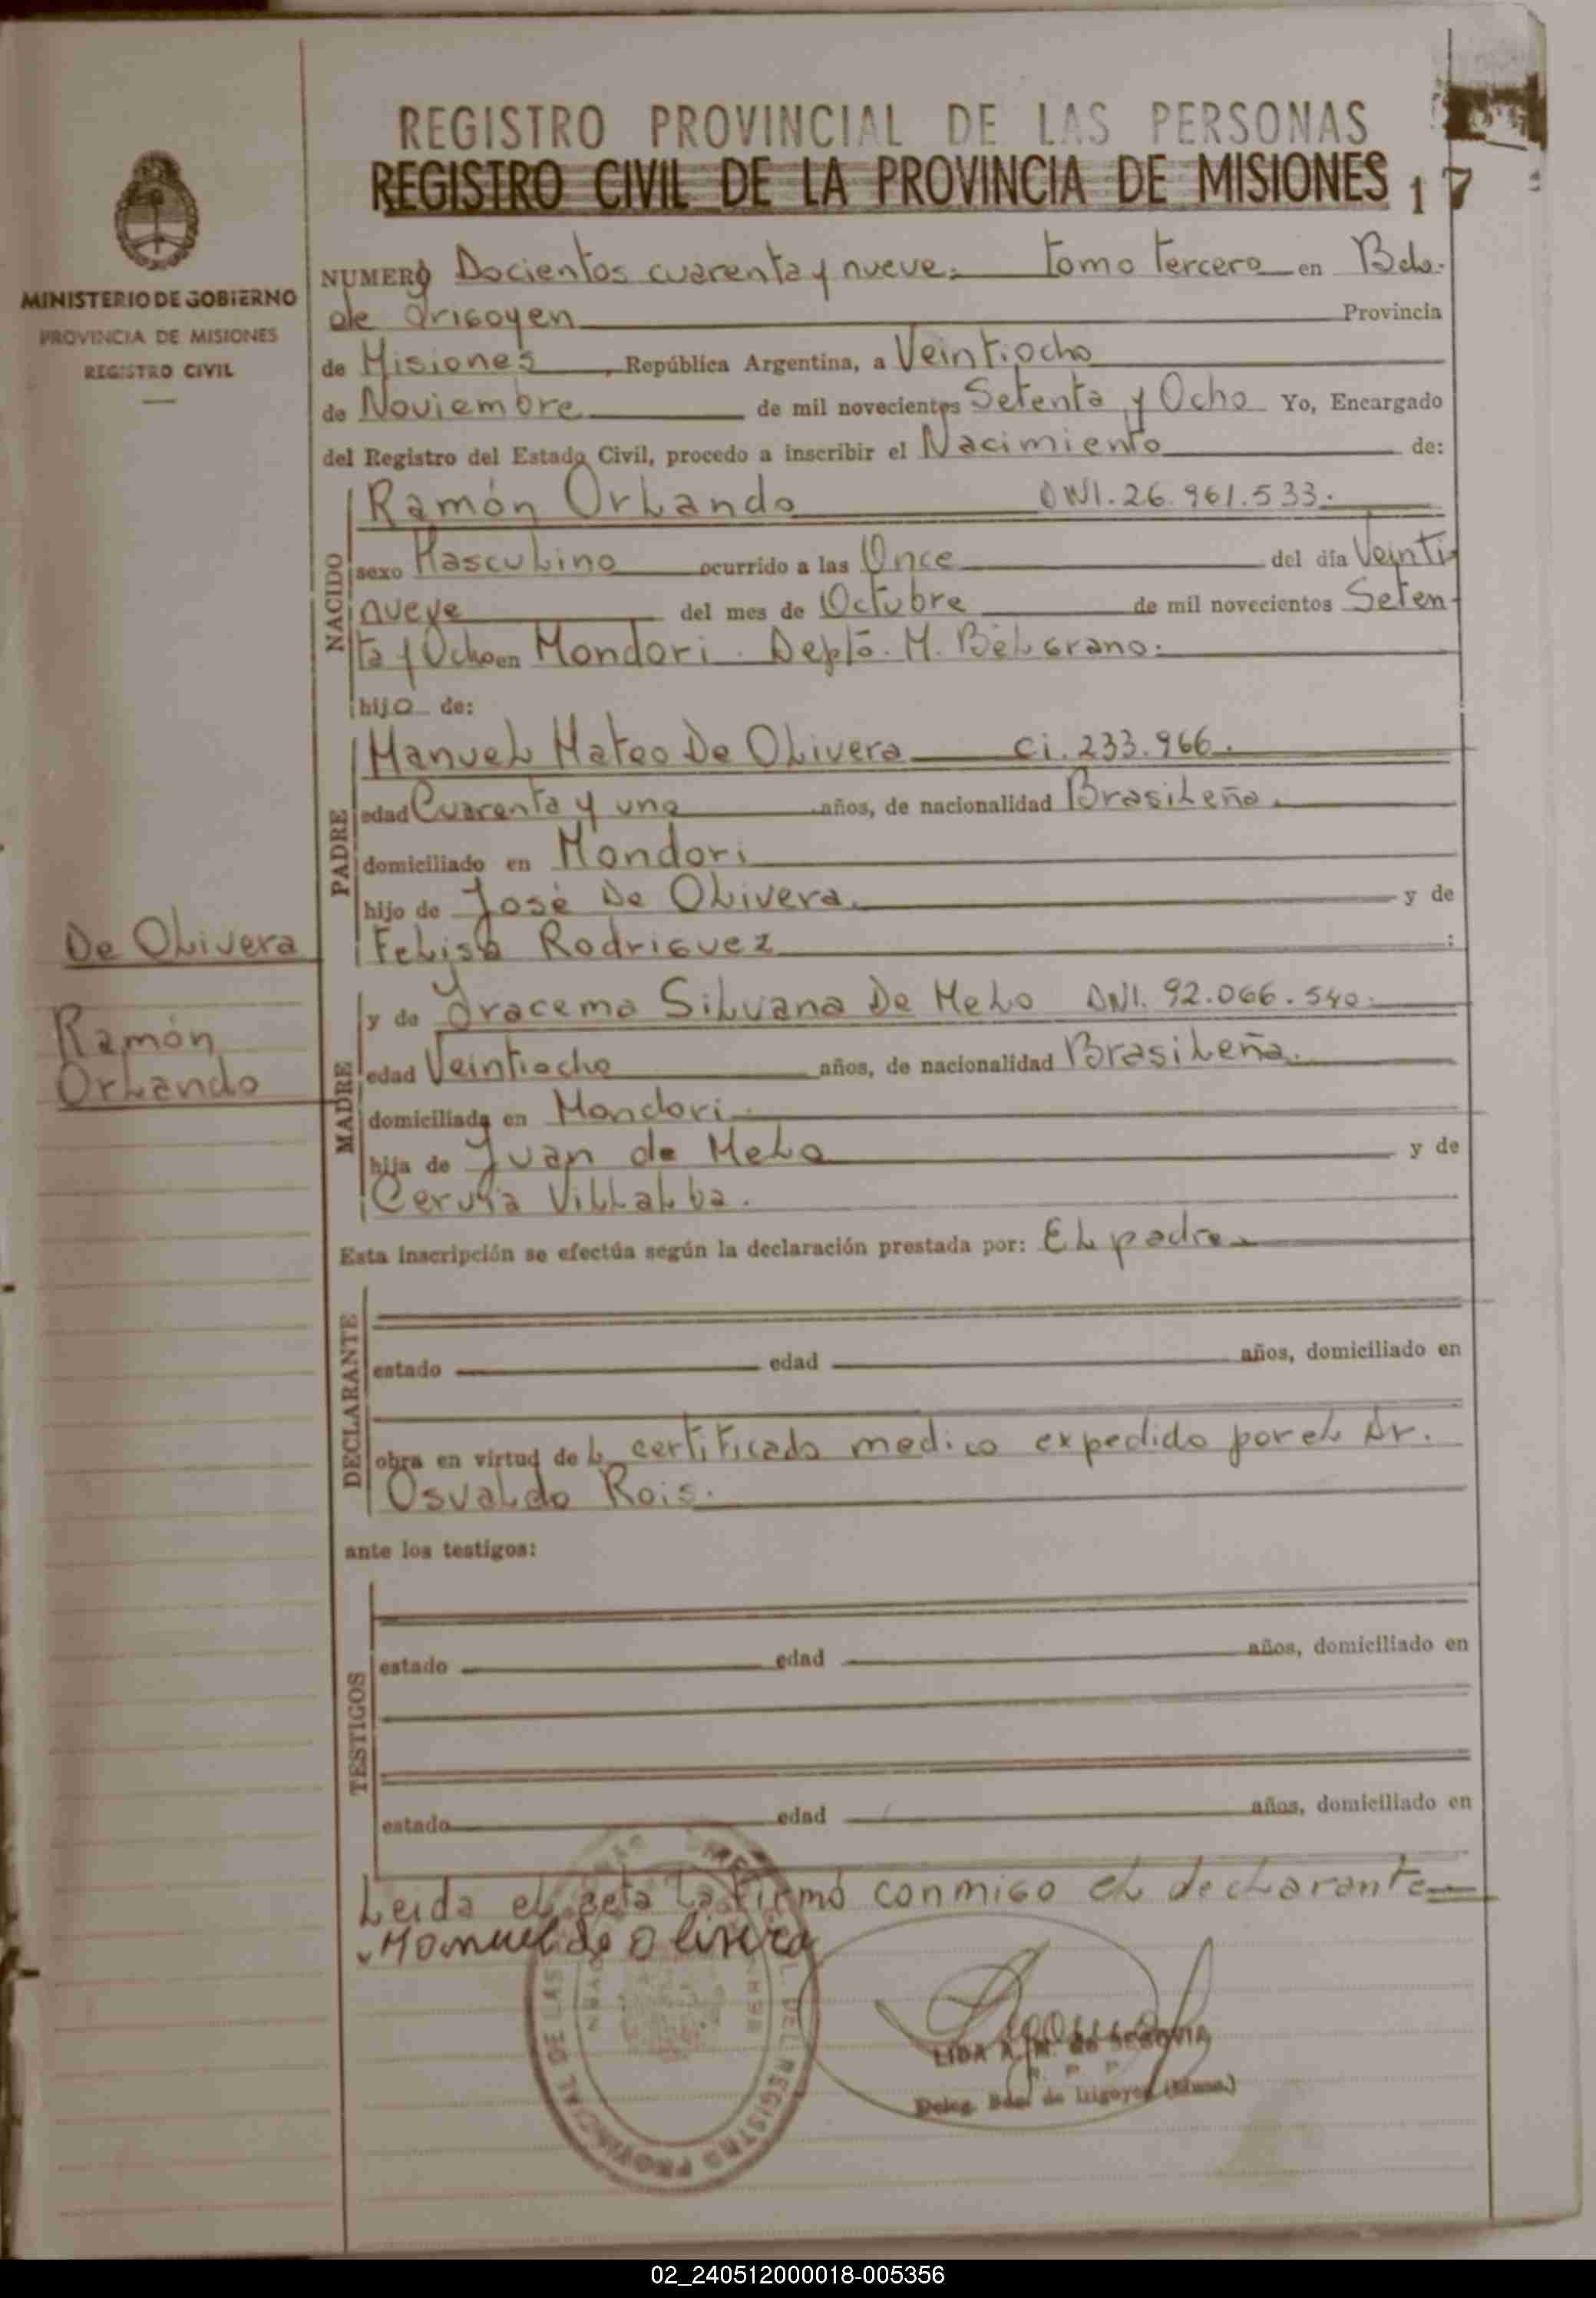 REGISTRO PROVINCIAL DE LAS PERSONAS
REGISTRO CIVIL DE LA PROVINCIA DE MISIONES 17
MINISTERIO DE GOBIERNO
PROVINCIA DE MISIONES
REGISTRO CIVIL
NUMERO Docientos cuarenta y nueve. Tomo Tercero en Bdo.
de Irigoyen Provincia
de Misiones, República Argentina, a Veintiocho
de Noviembre de mil novecientos Setenta y Ocho Yo, Encargado
del Registro del Estado Civil, procedo a inscribir el Nacimiento de:
NACIDO
Ramón Orlando DNI. 26.961.533.
sexo Masculino ocurrido a las Once del día Veinti
nueve del mes de Octubre de mil novecientos Seten
ta y Ocho en Mondori. Depto. M. Belgrano.
hijo de:
PADRE
Manuel Mateo De Olivera ci. 233.966.
edad Cuarenta y uno años, de nacionalidad Brasileña.
domiciliado en Mondori
hijo de José De Olivera. y de
Felisa Rodriguez :
De Olivera
Ramón
Orlando
MADRE
y de Iracema Silvana De Melo DNI. 92.066.540.
edad Veintiocho años, de nacionalidad Brasileña.
domiciliada en Mondori.
hija de Juan de Melo y de
Villalba.
Esta inscripción se efectúa según la declaración prestada por: El padre
DECLARANTE
estado edad años, domiciliado en
obra en virtud del certificado medico expedido por el Dr.
Osvaldo Rois.
ante los testigos:
TESTIGOS
estado edad años, domiciliado en
estado edad años, domiciliado en
Leida el acta la firmó conmigo el declarante
Manuel de Olivera
LIDA A. M. de SEGOVIA
Deleg. Bdo. de Irigoyen (Mnes.)
02_240512000018-005356